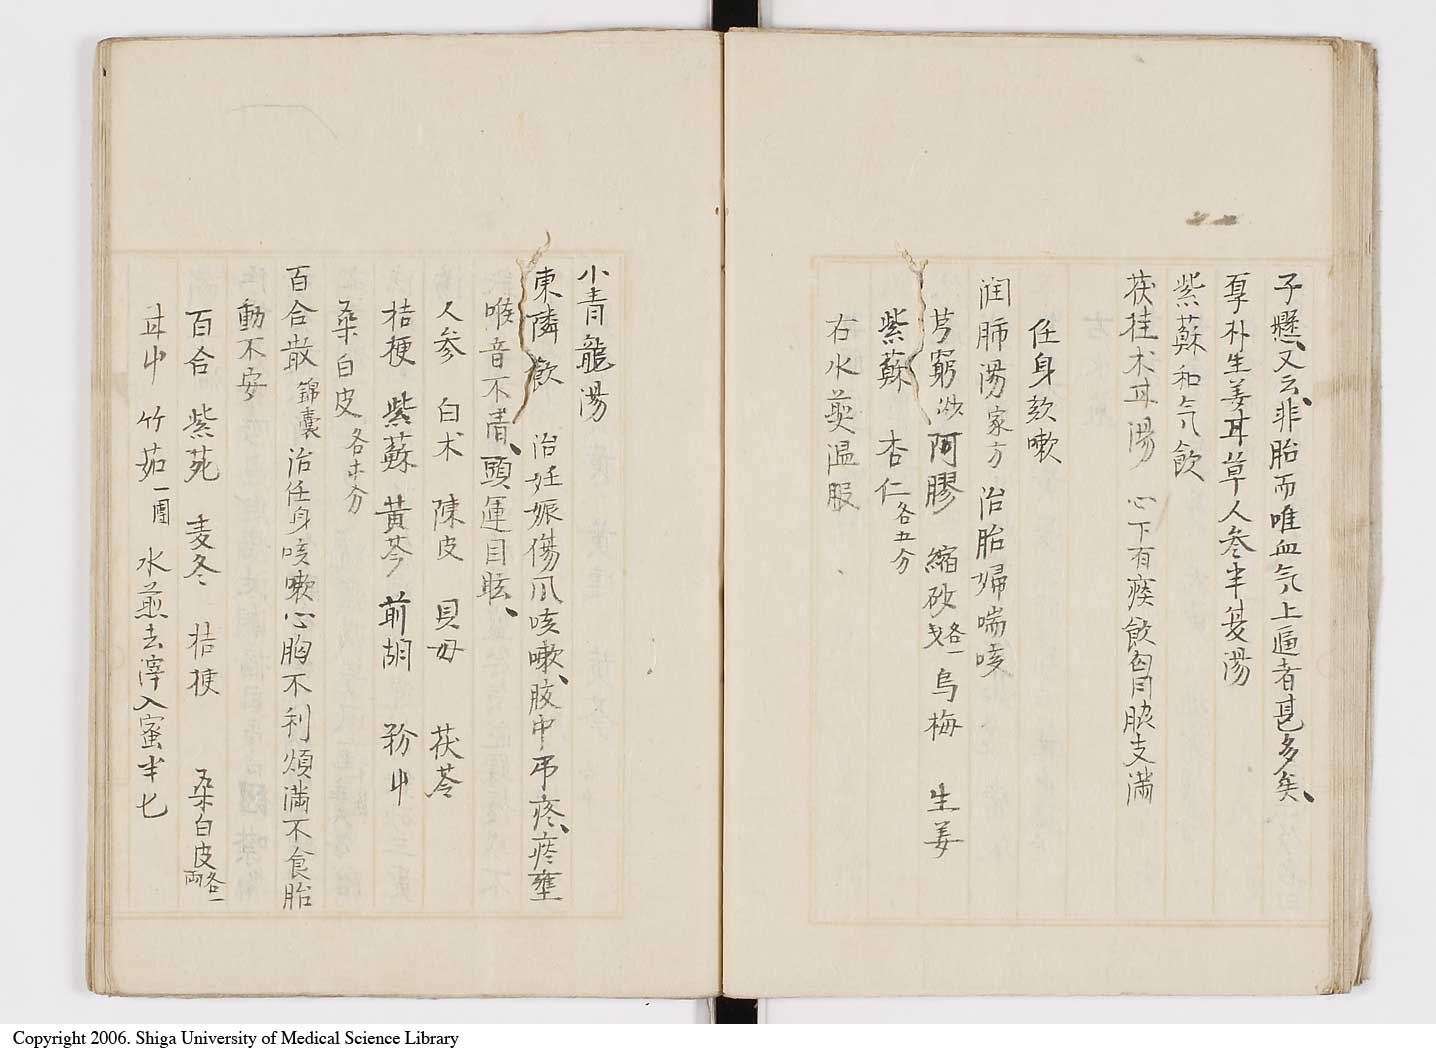 子懸、又云、非胎而唯血気上逼者甚多矣、
厚朴生姜甘草人参半夏湯
紫蘇和気飲
茯桂术甘湯 心下有痰飲胸脇支満
任身欬嗽
潤肺湯家方 治胎婦喘咳
芎窮 阿膠 縮砂各一戔 烏梅 生姜
紫蘇 杏仁各五分
右水煎温服
小青龍湯
東隣飲 治妊娠傷風咳嗽、胘中吊疼、痰壅
喉音不清、頭運目眩、
人参 白术 陳皮 貝母 茯苓
桔梗 紫蘇 黄芩 前胡 粉屮
桑白皮各木分
百合散錦嚢 治任身咳嗽心胸不利煩満不食胎
動不安
百合 紫苑 麦冬 桔梗 桑白皮各一両
甘屮 竹茹一團 水煎去滓入蜜半匕
Copyright 2006. Shiga University of Medical Science Library